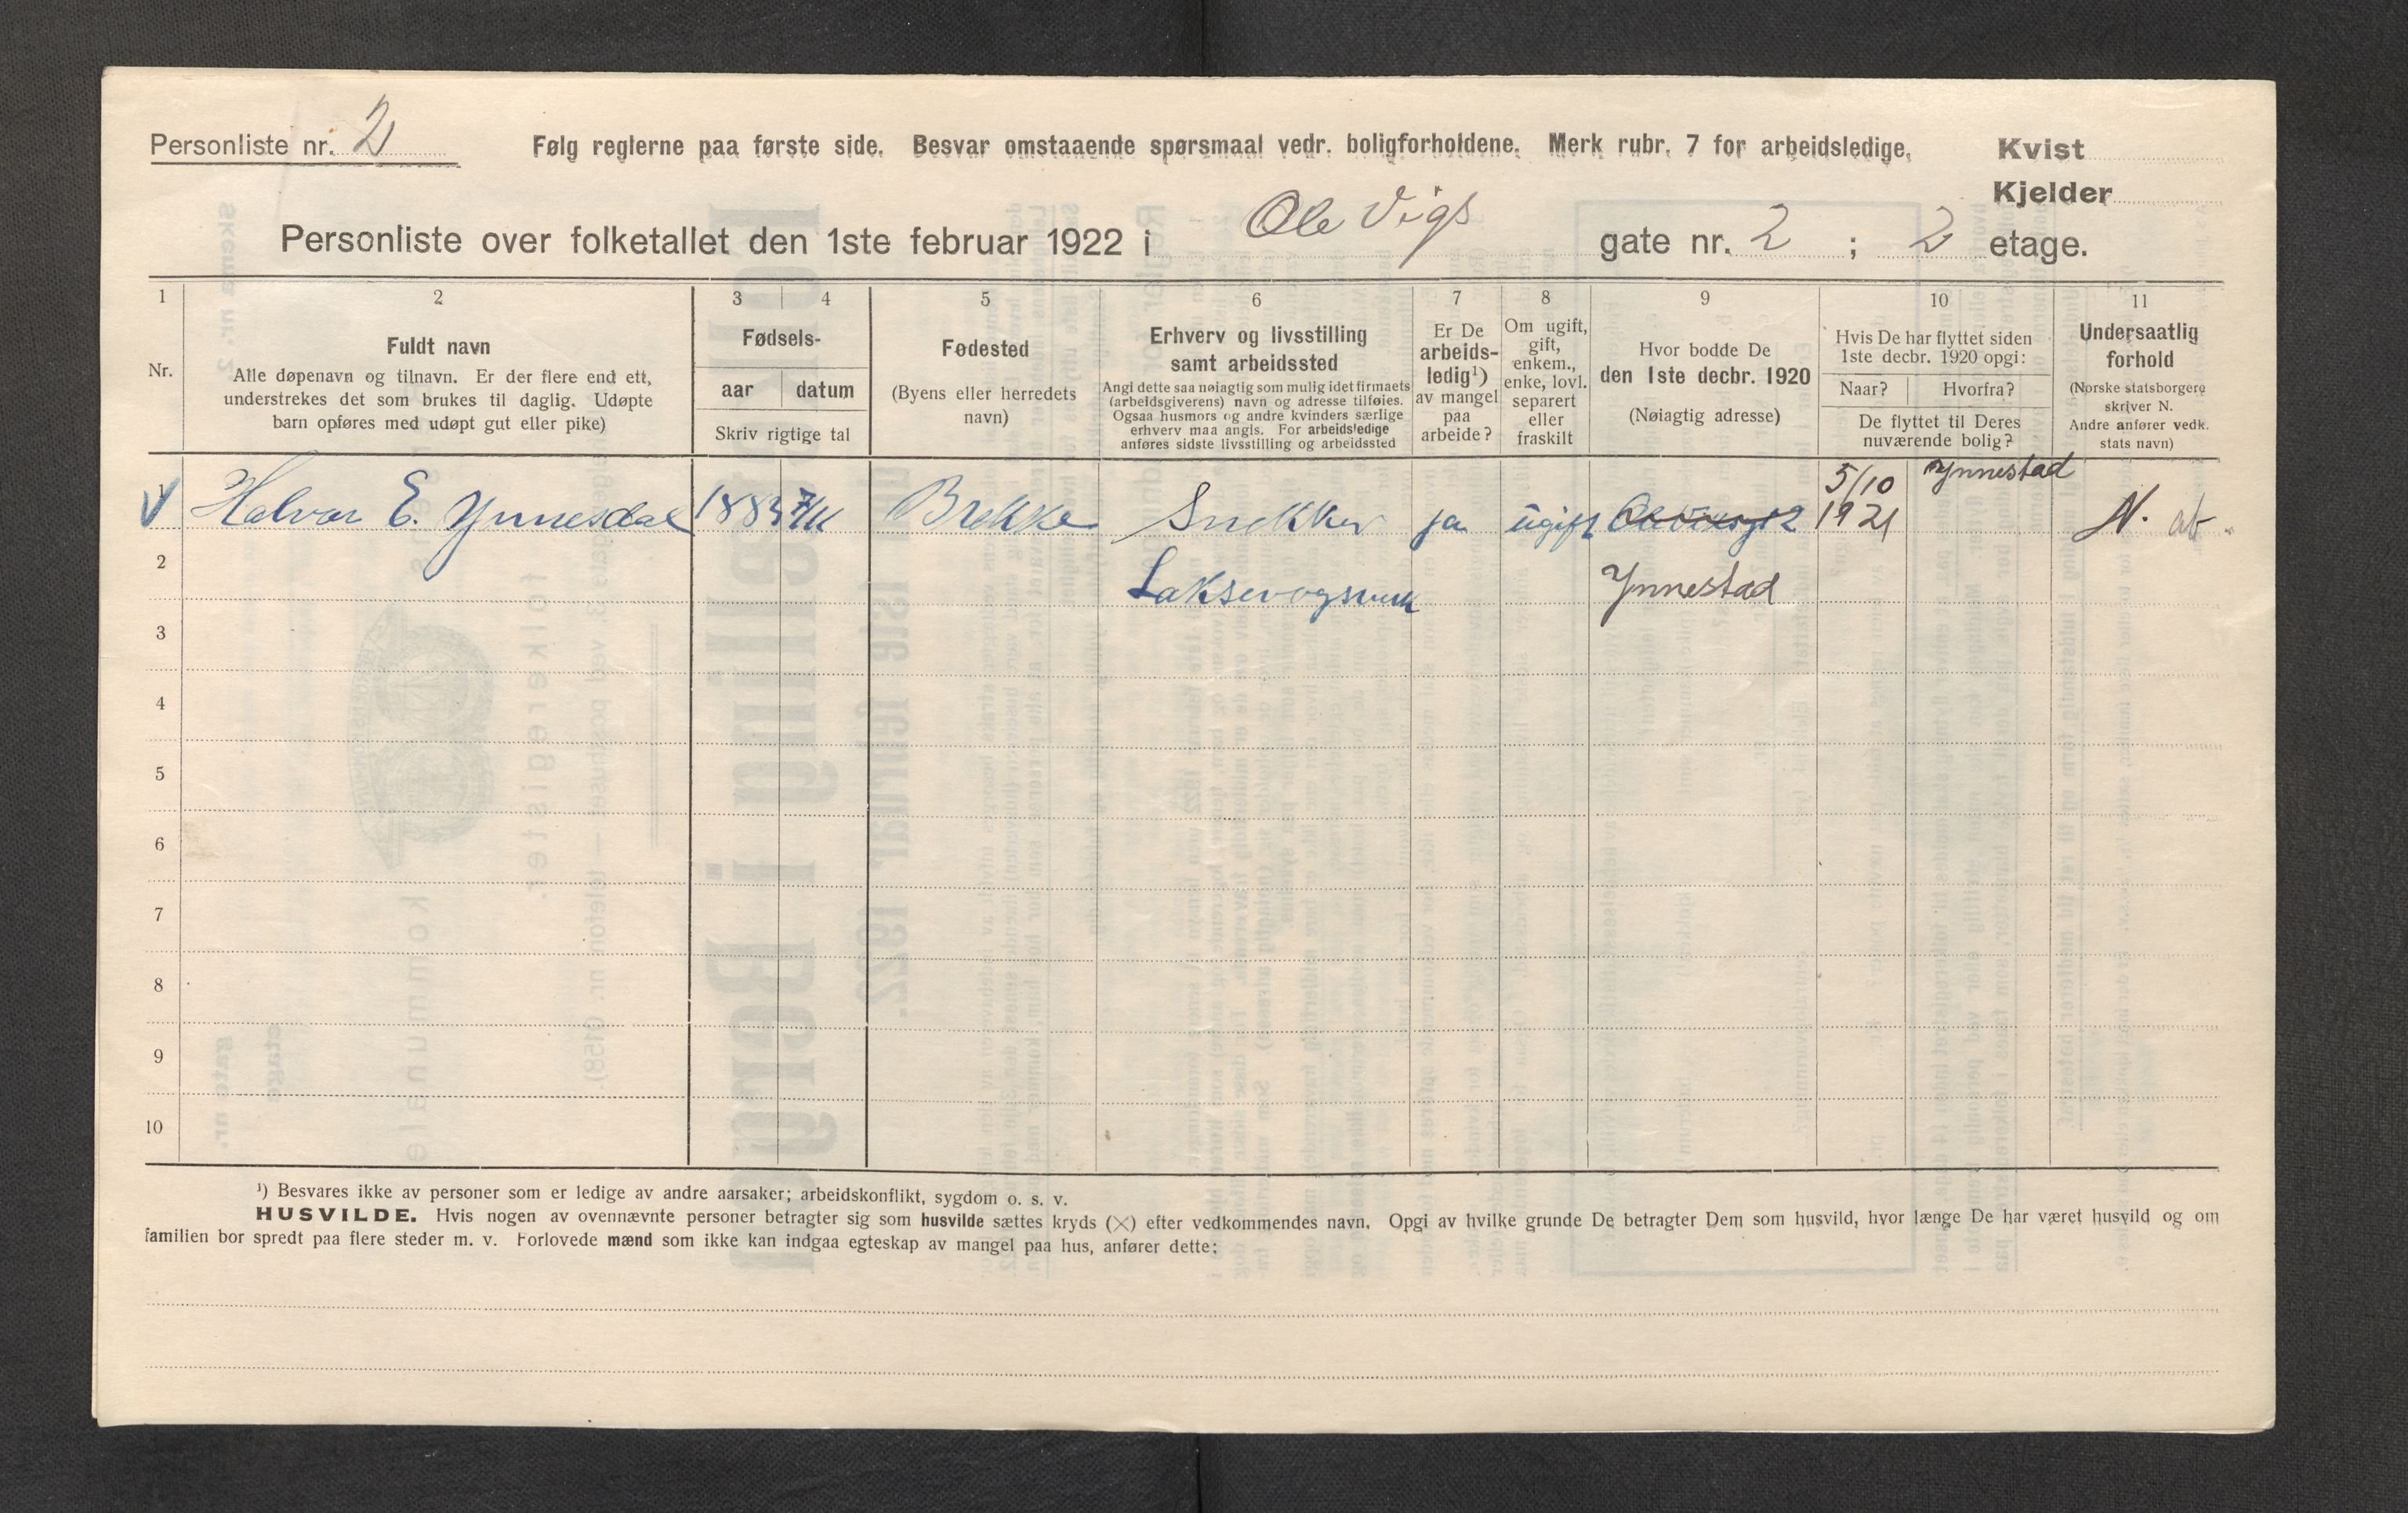 Personliste nr. 2
Følg reglerne paa første side. Besvar omstaaende spørsmaal vedr. boligforholdene. Merk rubr. 7 for arbeidsledige.
Kvist
Kjelder
Personliste over folketallet den 1ste februar 1922 i Ole Vigs gate nr. 2 ; 2 etage.
1 2 3 4 5 6 7 8 9 10 11
Nr.
Fuldt navn
Alle døpenavn og tilnavn. Er der flere end ett,
understrekes det som brukes til daglig. Udøpte
barn opføres med udøpt gut eller pike)
Fødsels-
aar datum
Skriv rigtige tal
Fødested
(Byens eller herredets
navn)
Erhverv og livsstilling
samt arbeidssted
Angi dette saa nøiagtig som mulig idet firmaets
(arbeidsgiverens) navn og adresse tilføies.
Ogsaa husmors og andre kvinders særlige
erhverv maa angis. For arbeidsledige
anføres sidste livsstilling og arbeidssted
Er De
arbeids-
ledig¹)
av mangel
paa
arbeide?
Om ugift,
gift,
enkem.,
enke, lovl.
separert
eller
fraskilt
Hvor bodde De
den 1ste decbr. 1920
(Nøiagtig adresse)
Hvis De har flyttet siden
1ste decbr. 1920 opgi:
Naar? Hvorfra?
De flyttet til Deres
nuværende bolig?
Undersaatlig
forhold
(Norske statsborgere
skriver N.
Andre anfører vedk.
stats navn)
1 Halvar E. Ynnesdal 1883 7/11 Brekke Snekker ja ugift 5/10 1921 Ynnestad N.
2 Laksevogsverk Ynnestad
3
4
5
6
7
8
9
10
¹) Besvares ikke av personer som er ledige av andre aarsaker; arbeidskonflikt, sygdom o. s. v.
HUSVILDE. Hvis nogen av ovennævnte personer betragter sig som husvilde sættes kryds (×) efter vedkommendes navn. Opgi av hvilke grunde De betragter Dem som husvild, hvor længe De har været husvild og om
familien bor spredt paa flere steder m. v. Forlovede mænd som ikke kan indgaa egteskap av mangel paa hus, anfører dette: